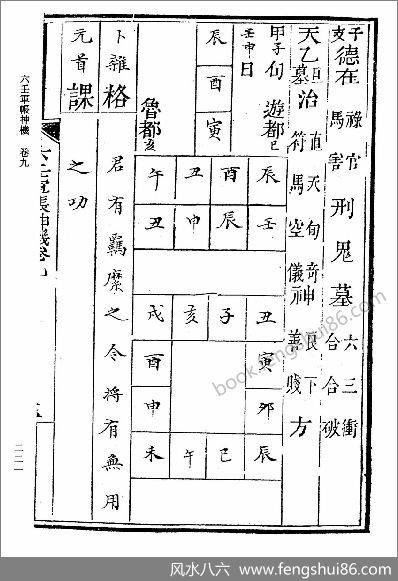 子支德在 祿馬 官害 刑鬼墓 六合 三合 衝破
天乙旦墓治 直符 天馬 旬空 奇儀 神 良善 下賤 方
甲子旬 遊都巳
壬申日
辰
酉
寅
魯都亥
午丑酉辰
丑申辰壬
戌亥子丑
酉寅
申卯
未午巳辰
卜雜格
元首課
君有羈縻之令將有無用
之叨
六壬軍帳神機 卷九
二二一
book.fengshui86.com
风水八六－www.fengshui86.com